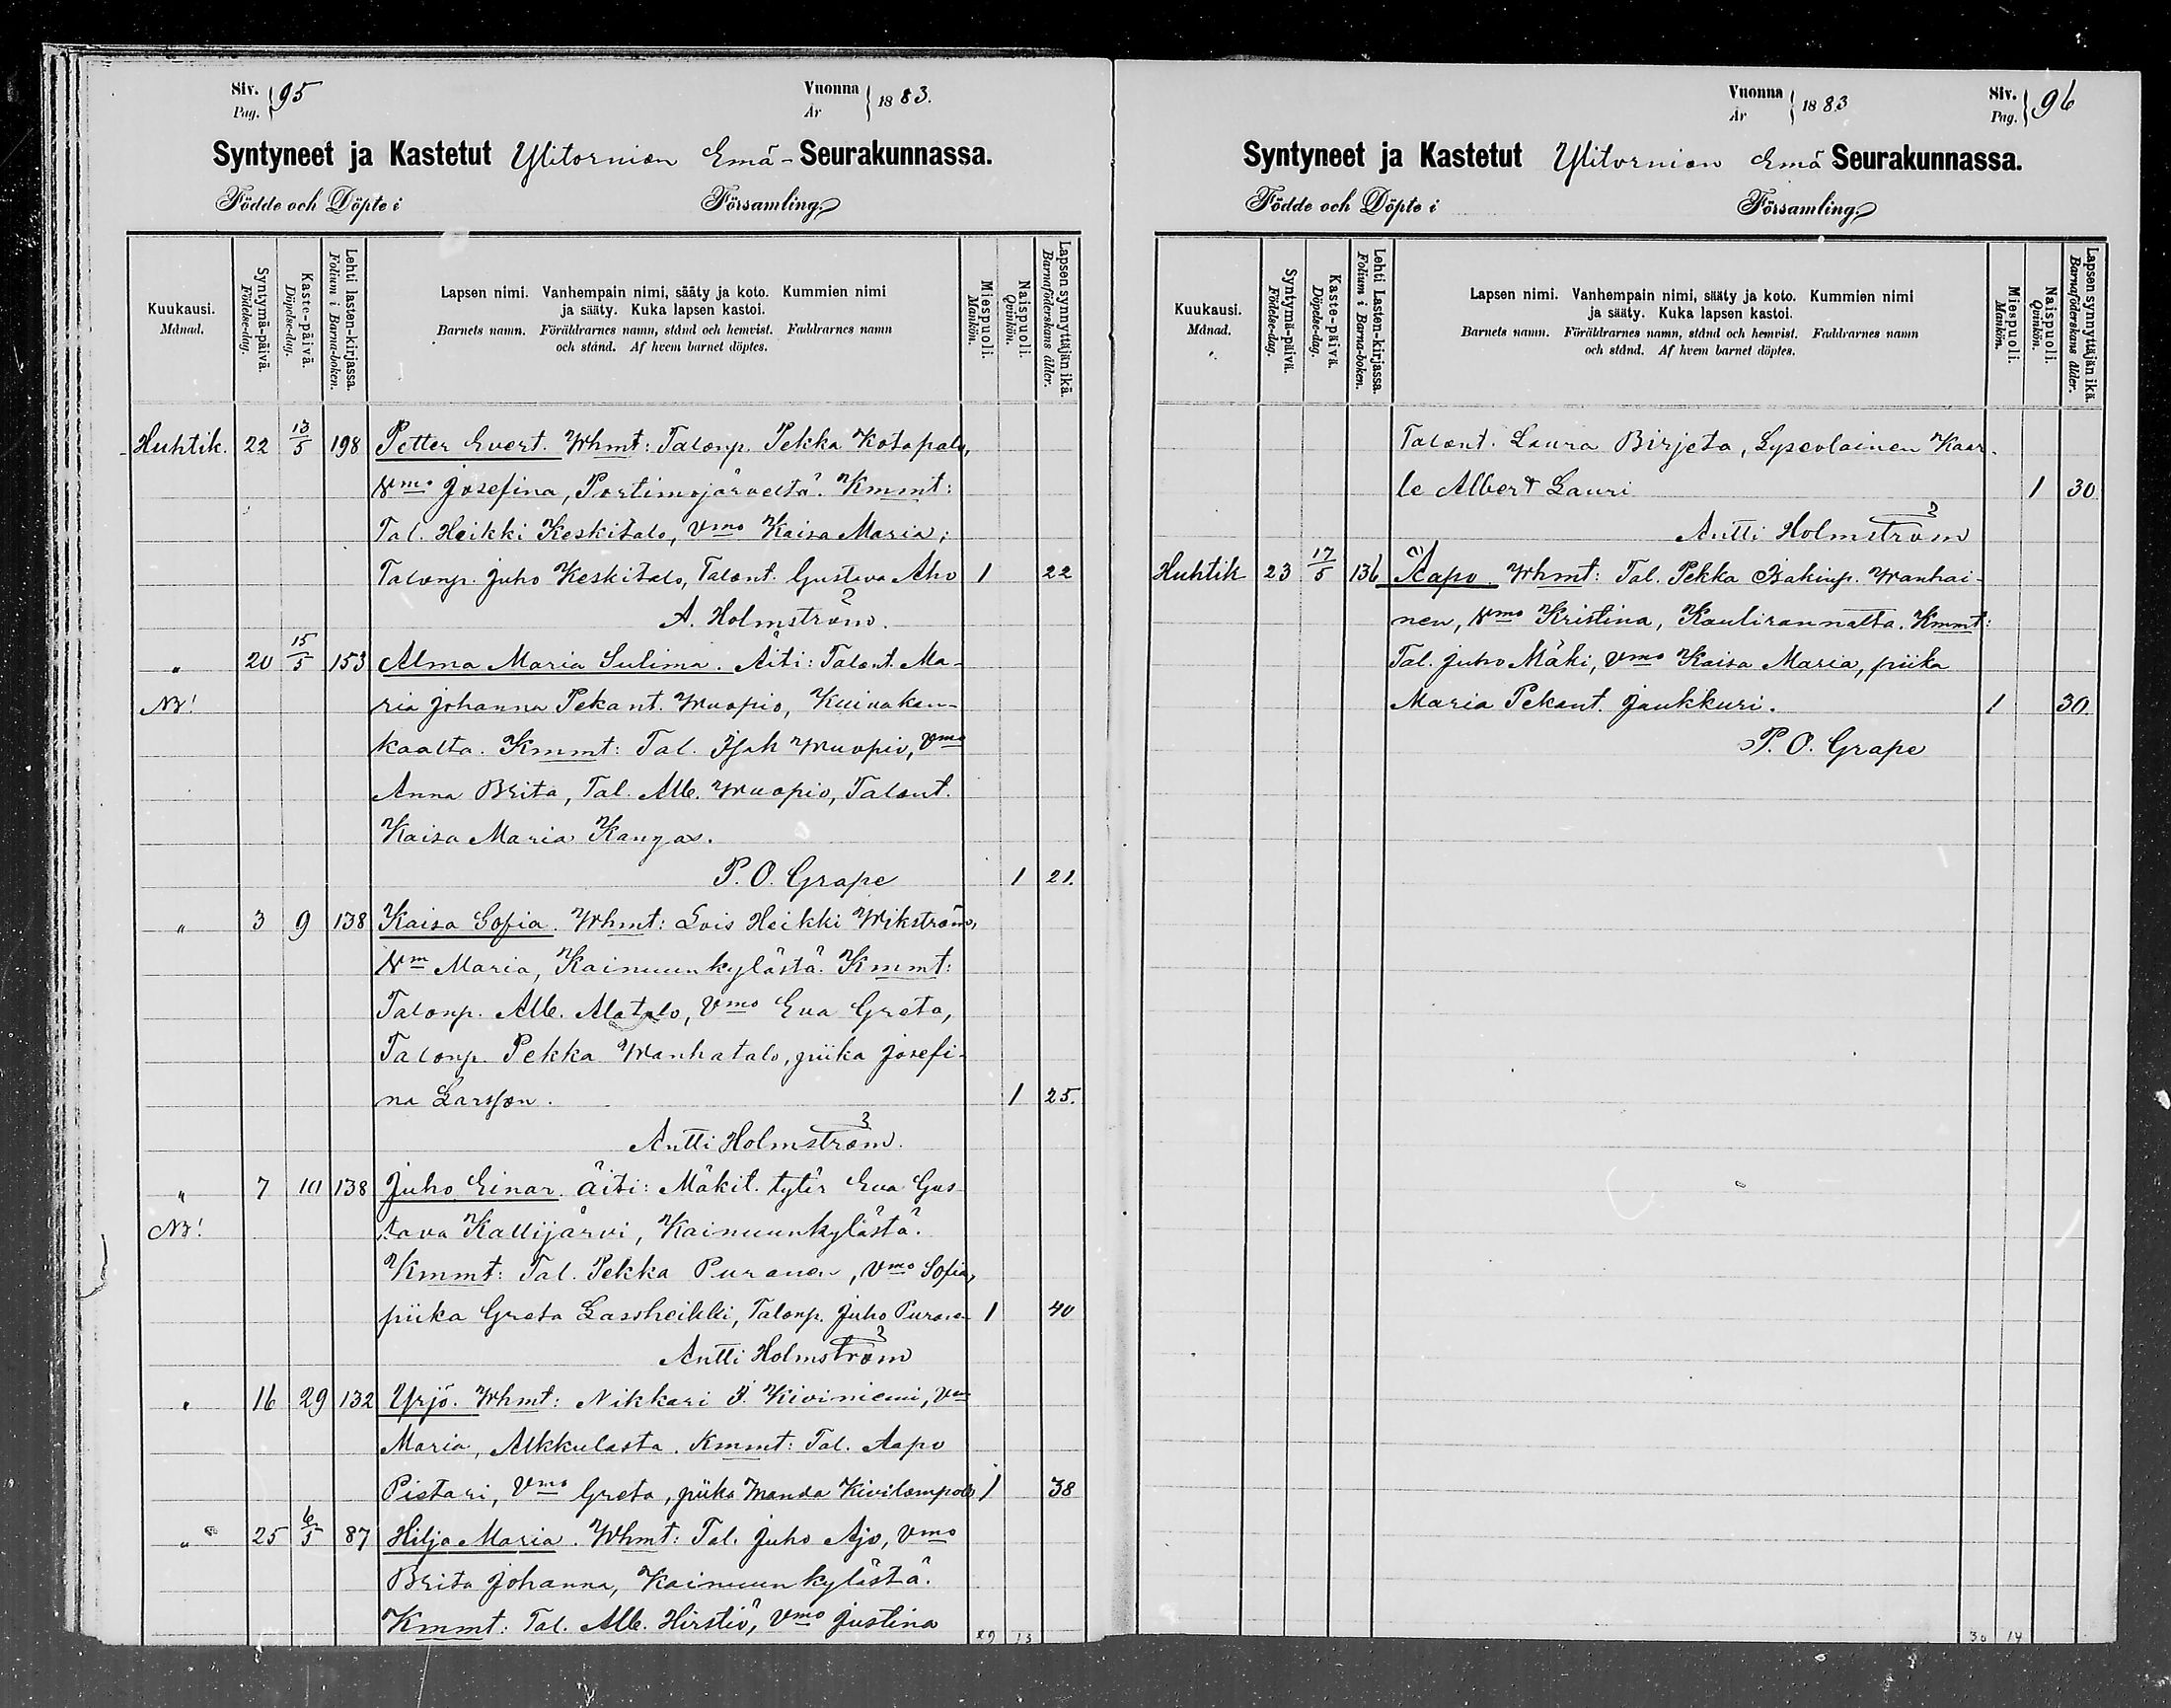 Siv. Pag. 95
Vuonna År 1883.
Syntyneet ja Kastetut Ylitornion Emä-Seurakunnassa.
Födde och Döpte i Församling.
Kuukausi. Månad.
Syntymä-päivä. Födelse-dag.
Kaste-päivä. Döpelse-dag.
Lehti lasten-kirjassa. Folium i Barna-boken.
Lapsen nimi. Vanhempain nimi, sääty ja koto. Kummien nimi
ja sääty. Kuka lapsen kastoi.
Barnets namn. Föräldrarnes namn, stånd och hemvist. Faddrarnes namn
och stånd. Af hvem barnet döptes.
Miespuoli. Mankön.
Naispuoli. Qvinkön.
Lapsen synnyttäjän ikä. Barnaföderskans ålder.
Huhtik. 22 13/5 198 Petter Evert. Whmt: Talonp. Pekka Kotapalo,
Vmo Josefina, Portimojärveltä. Kmmt:
Tal. Heikki Keskitalo, Vmo Kaisa Maria;
Talonp. Juho Keskitalo, Talont. Gustava Aho 1 22
A. Holmström.
" 20 15/5 153 Alma Maria Sulima. Äiti: Talont. Ma-
NB! ria Johanna Pekant. Wuopio, Kuivakan-
kaalta. Kmmt: Tal. Isak Wuopio, Vmo
Anna Brita, Tal. Alb. Wuopio, Talont.
Kaisa Maria Kangas.
P. O. Grape 1 21.
" 3 9 138 Kaisa Sofia. Whmt: Lois Heikki Wikström,
Vm Maria, Kainuunkylästä. Kmmt:
Talonp. Alb. Alatalo, Vmo Eva Greta,
Talonp. Pekka Wanhatalo, piika Josefi-
na Larsson. 1 25.
Antti Holmström.
" 7 10 138 Juho Einar. Äiti: Mäkit. tytär Eva Gus-
NB! tava Kallijärvi, Kainuunkylästä.
Kmmt: Tal. Pekka Puranen, Vmo Sofia,
piika Greta Lassheikki, Talonp. Juho Puranen 1 40
Antti Holmström
" 16 29 132 Yrjö. Whmt: Nikkari I. Kiviniemi, Vm
Maria, Alkkulasta. Kmmt: Tal. Aapo
Pistari, Vmo Greta, piika Manda Kivilompolo 1 38
" 25 6/5 87 Hilja Maria. Whmt: Tal. Juho Ajo, Vmo
Brita Johanna, Kainuunkylästä.
Kmmt: Tal. Alb. Hirstiö, Vmo Justina
29 13
Vuonna År 1883
Siv. Pag. 96
Syntyneet ja Kastetut Ylitornion Emä Seurakunnassa.
Födde och Döpte i Församling.
Kuukausi. Månad.
Syntymä-päivä. Födelse-dag.
Kaste-päivä. Döpelse-dag.
Lehti Lasten-kirjassa. Folium i Barna-boken.
Lapsen nimi. Vanhempain nimi, sääty ja koto. Kummien nimi
ja sääty. Kuka lapsen kastoi.
Barnets namn. Föräldrarnes namn, stånd och hemvist. Faddrarnes namn
och stånd. Af hvem barnet döptes.
Miespuoli. Mankön.
Naispuoli. Qvinkön.
Lapsen synnyttäjän ikä. Barnaföderskans ålder.
Talont. Laura Birjeta, Lyseolainen Kaar-
le Albert Lauri 1 30
Antti Holmström
Huhtik 23 17/5 136 Aapo. Whmt: Tal. Pekka Isakinp. Wanhai-
nen, Vmo Kristina, Kaulirannalta. Kmmt:
Tal. Juho Mäki, Vmo Kaisa Maria, piika
Maria Pekant. Jaukkuri. 1 30.
P. O. Grape
30 14